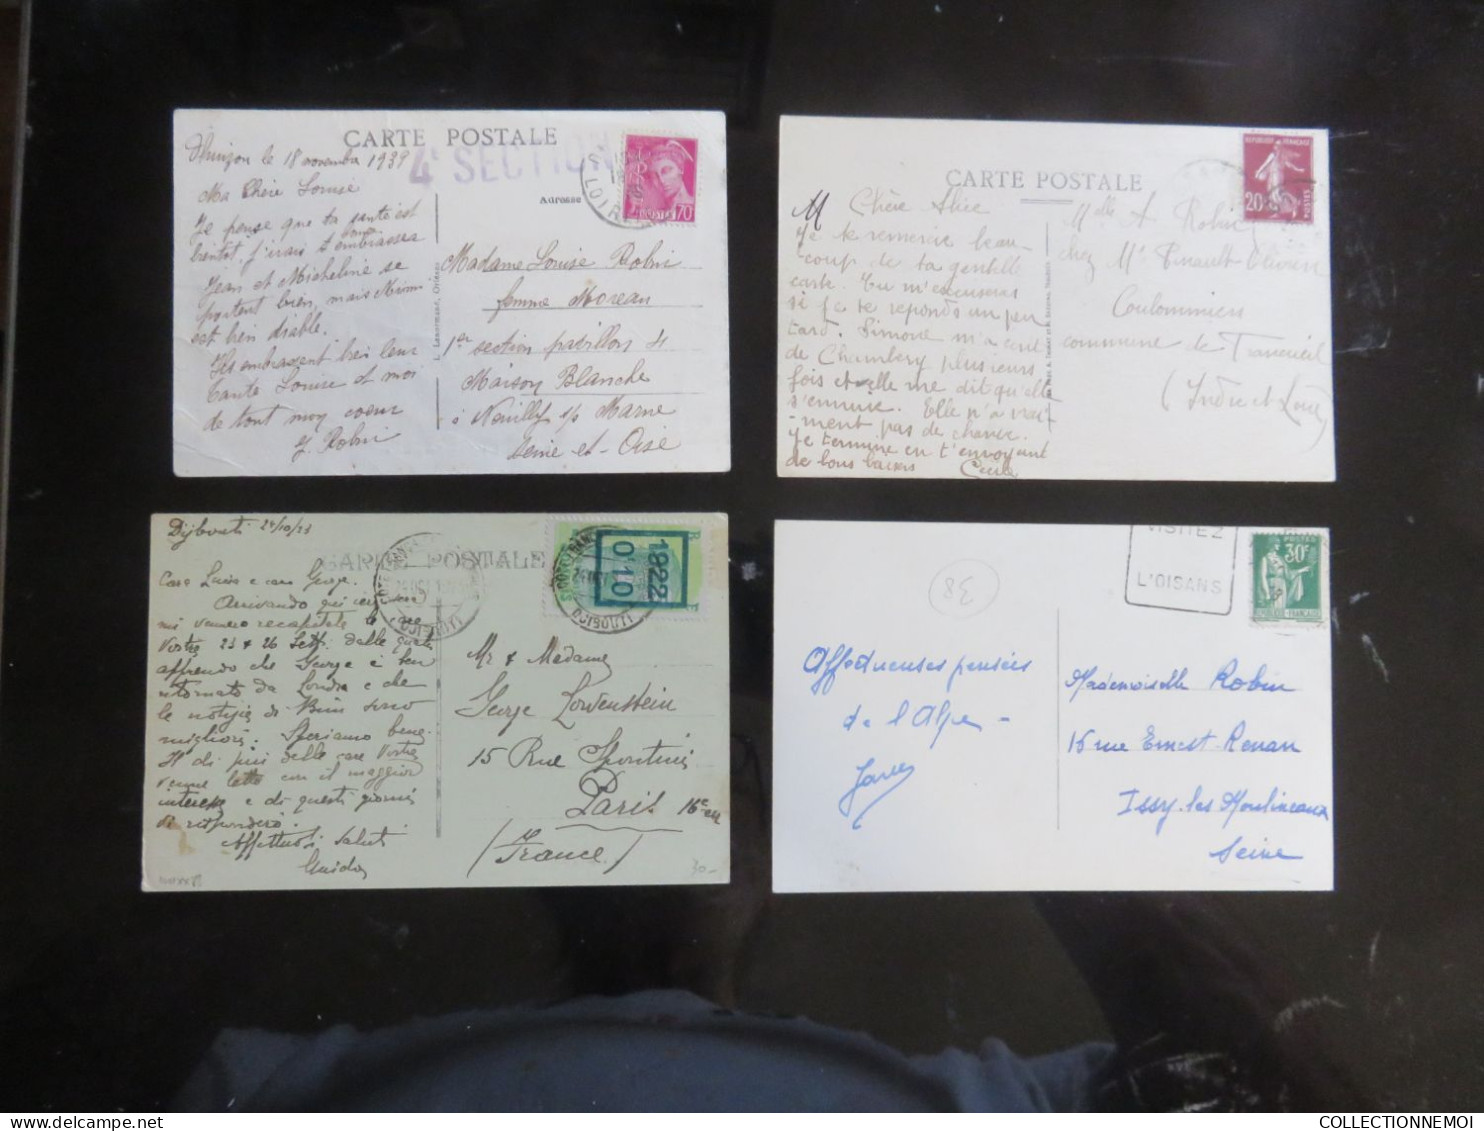 CARTE POSTALE
4e SECTION
le 18 novembre 1939
Ma Chère Louise
Je pense que ta santé est
bientot j'irais t'embrasser
Jean et Micheline se
portent bien, mais Mimi
est bien diable.
Ils embrassent bien leur
Tante Louise et moi
de tout mon coeur
Y. Robin
Adresse
70
Madame Louise Robin
femme Moreau
1ère section pavillon 4
Maison Blanche
à Neuilly s/ Marne
Seine et Oise
CARTE POSTALE
REPUBLIQUE FRANÇAISE
20c
POSTES
Chère Alice
Je te remercie beau-
coup de ta gentille
carte. Tu m'excuseras
si je te reponds un peu
tard. Simone m'a écrit
de Chambéry plusieurs
fois et elle me dit qu'elle
s'ennuie. Elle n'a vrai-
-ment pas de chance.
Je termine en t'envoyant
de bons baisers Cécile
Melle A. Robin
chez Mr
Coulommiers
commune de
(Indre et Loire)
Djibouti 24/10/23
CARTE POSTALE
Caro Luisa e caro George.
Arrivando qui
mi vennero recapitate le care
Vostre 23 & 26 Sett. dalle quali
apprendo che George è ben
ritornato da Londra e che
le notizie di sono
migliori. Speriamo bene.
di più delle care Vostre
venne letto con il maggior
interesse e di questi giorni
Vi risponderò.
Affettuosi saluti
Guido
1922
0'10
DJIBOUTI
Mr & Madame
George Lowenstein
15 Rue Spontini
Paris 16e
(France)
30-
VISITEZ
L'OISANS
30c
POSTES
38
Affectueuses pensées
de l'Alpe -
Mademoiselle Robin
15 rue Ernest-Renan
Issy-les-Moulineaux
Seine
COLLECTIONNEMOI